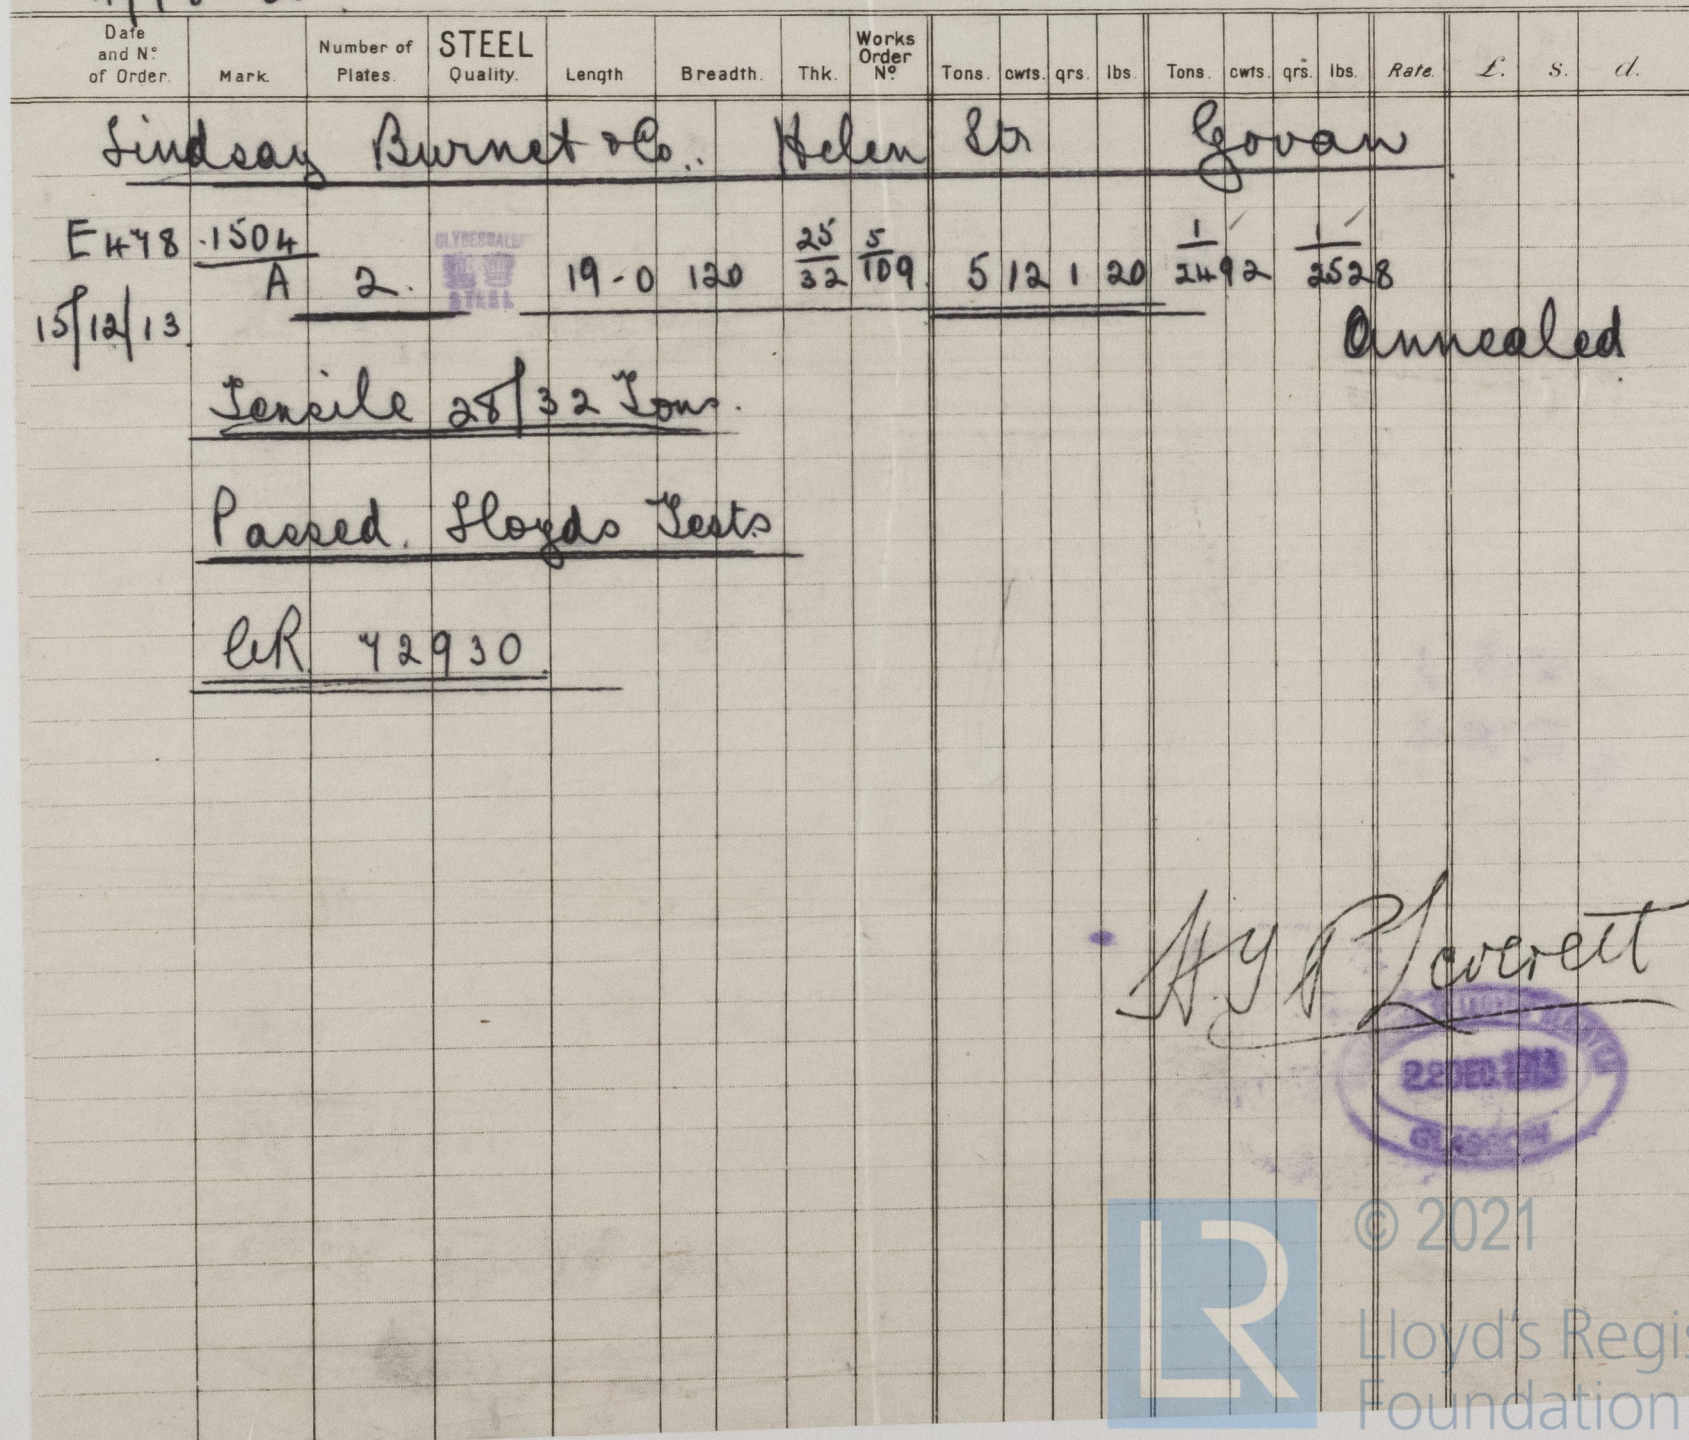 Date and No. of Order. Mark. Number of Plates. STEEL Quality. Length. Breadth. Thk. Works Order No. Tons. cwts. qrs. lbs. Tons. cwts. qrs. lbs. Rate. £. s. d.
Lindsay Burnet & Co.. Helen Str Govan
E478 .1504/A 2. CLYDEBRIDGE STEEL 19-0 120 25/32 5/109 5 12 1 20 1/2492 1/2528
15/12/13 Annealed
Tensile 28/32 Tons.
Passed. Lloyds Tests
CR 72930
H Y P Leverett
DEC. 1913
GLASGOW
© 2021
LR
Lloyd's Regis
Foundation